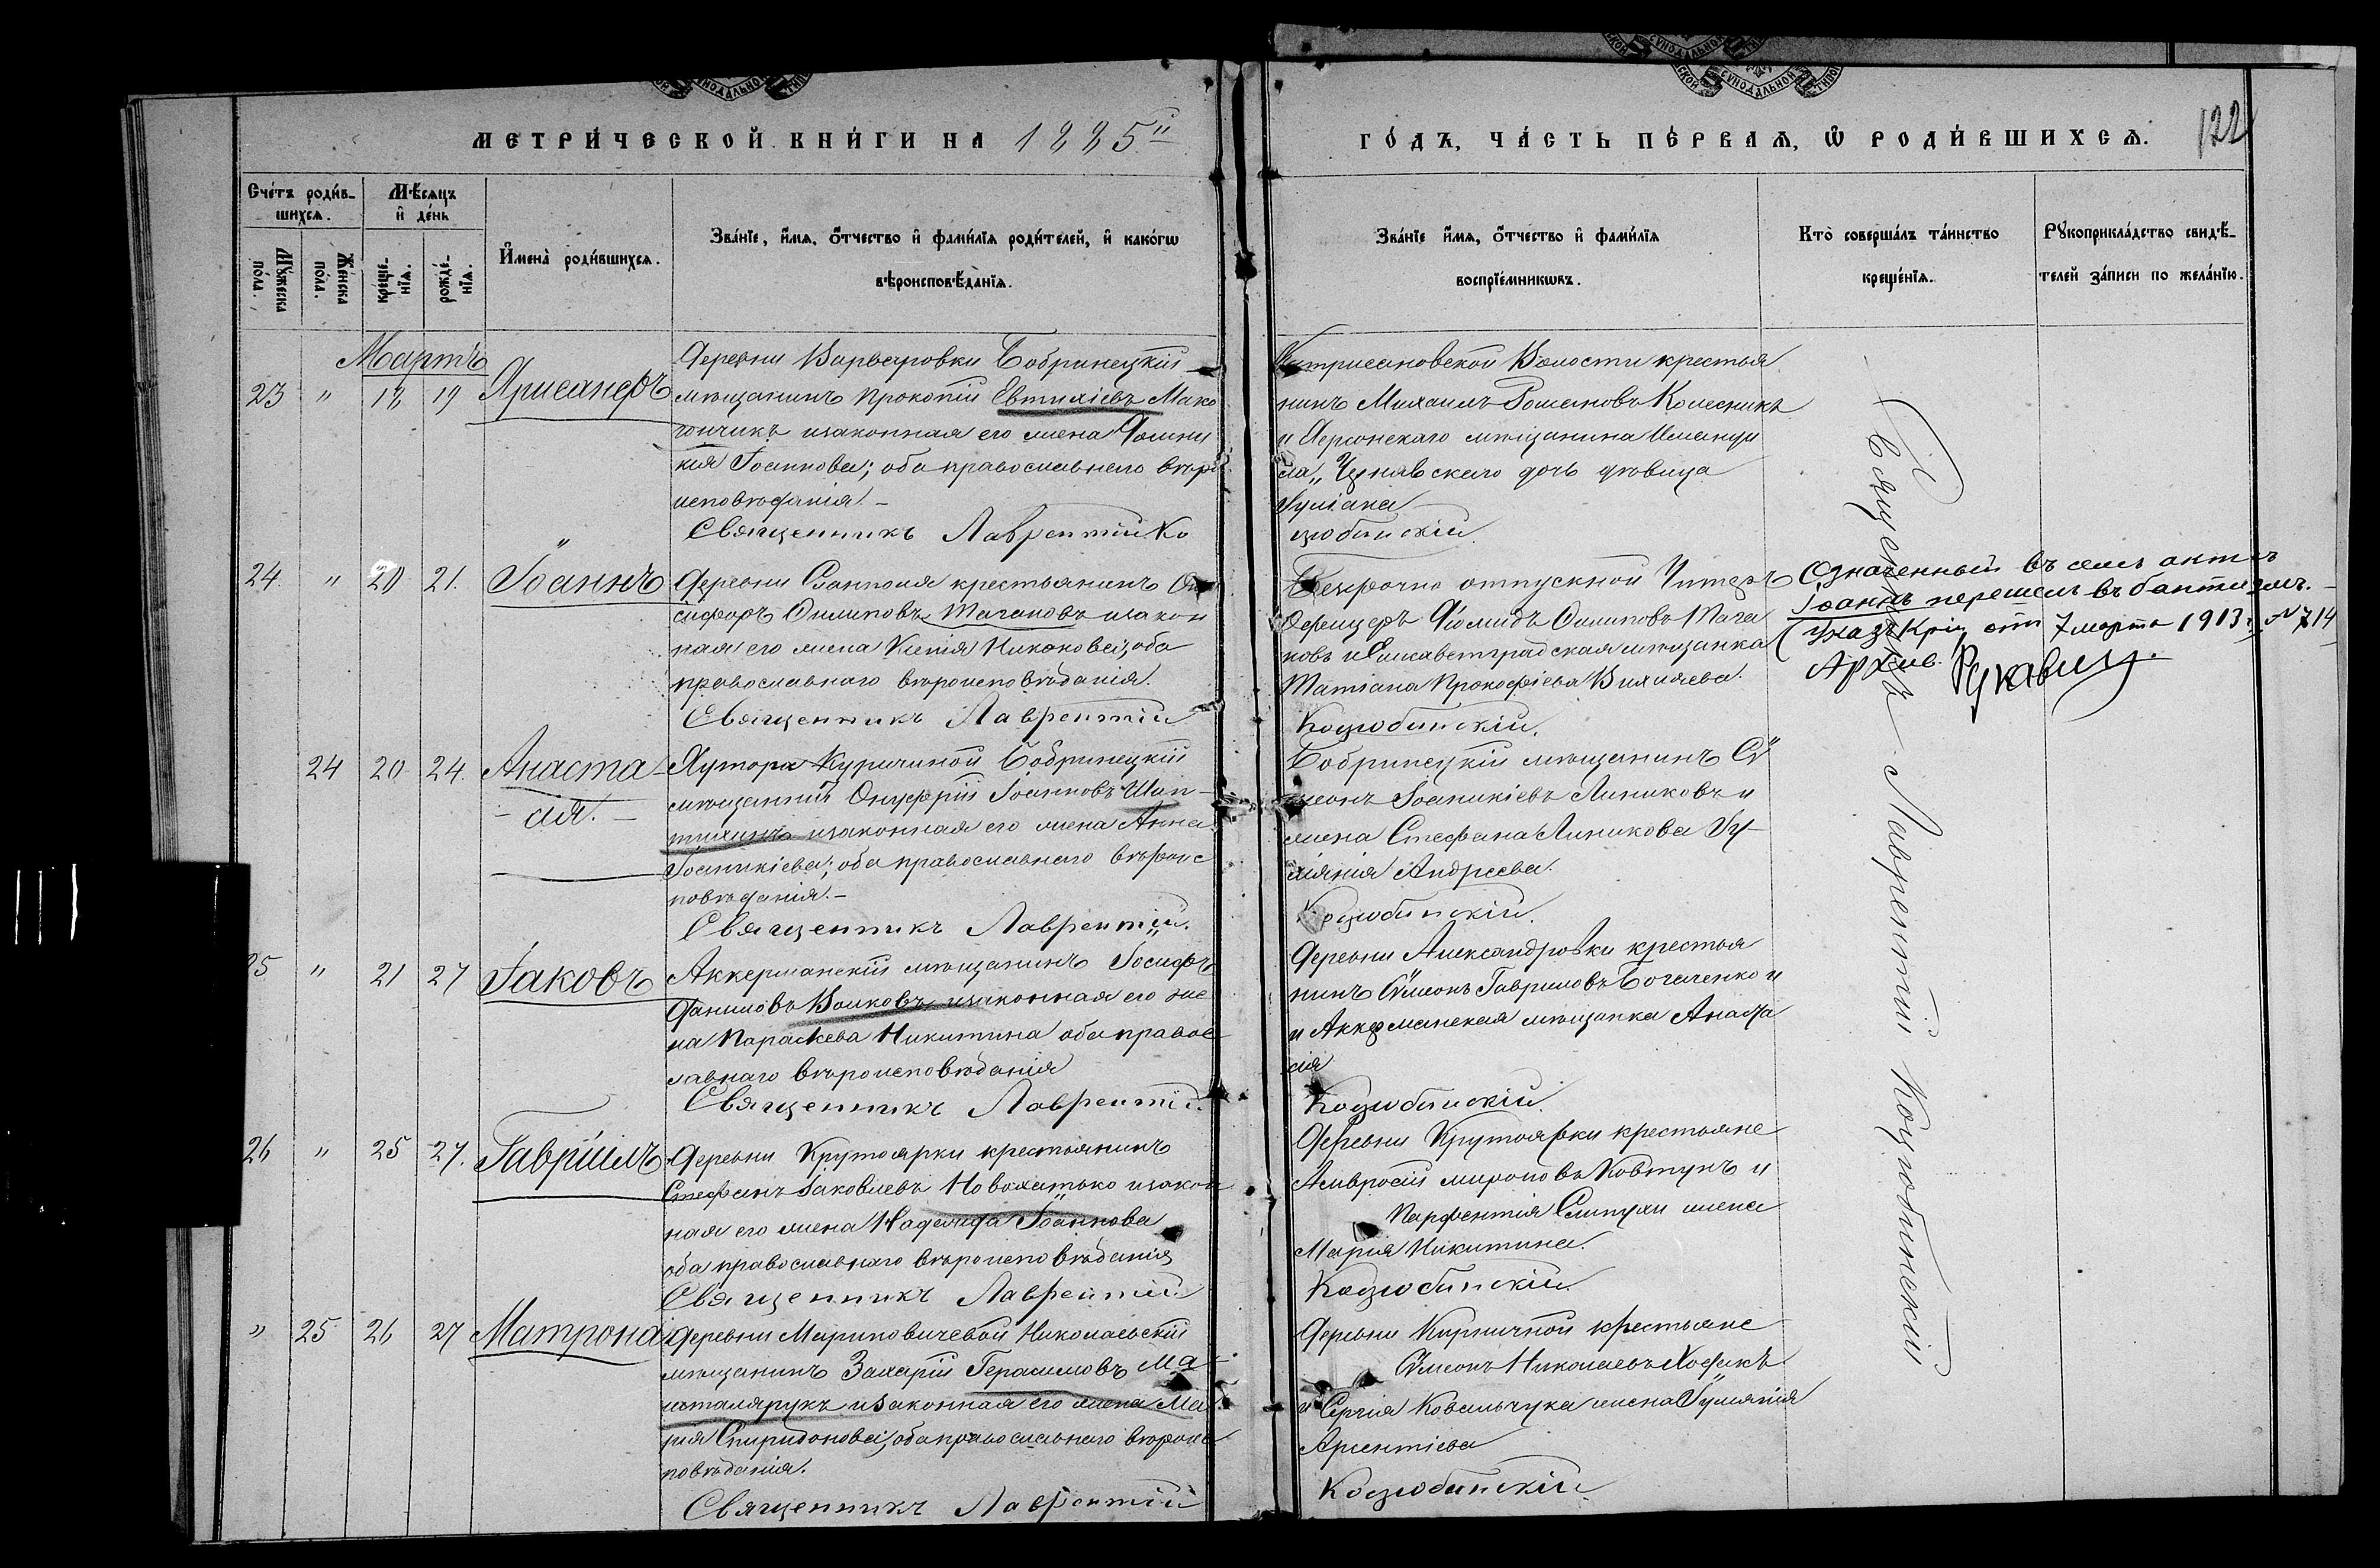 МЕТРИ́ЧЕСКОЙ КНИ́ГИ НА 1885й
ГО́ДЪ, ЧА́СТЬ ПЕ́РВАѦ, Ѽ РОДИ́ВШИХСѦ.
122
Сче́тъ роди́в-
шихсѧ.
Мѣ́сѧцъ
и҆ де́нь
Мꙋ́жеска
по́ла.
Же́нска
по́ла.
креще́-
нїѧ.
рожде́-
нїѧ.
И҆мена̀ роди́вшихсѧ.
Зва́нїе, и҆́мѧ, ѻ҆́тчество и҆ фами́лїѧ роди́телей, и҆ како́гѡ
вѣроисповѣ́данїѧ.
Зва́нїе и҆́мѧ, ѻ҆́тчество и҆ фами́лїѧ
воспрїе́мникѡвъ.
Кто̀ соверша́лъ та́инство
креще́нїѧ.
Рꙋкоприкла́дство свидѣ́-
телей за́писи по жела́нїю.
Мартъ
23 " 18 19
Деревни Варваровки Бобринецкій
мѣщанинъ Прокопій Евтихіевъ Мако
гончикъ изаконная его жена Домни
кія Іоаннова; оба православнаго вѣро
исповѣданія.
Священникъ Лаврентій Ко
Волости крестья
нинъ Михаилъ Романовъ Колесникъ
и Херсонскаго мѣщанина
Чернявскаго дочь дѣвица
Іуліана
цюбинскій
24 " 20 21. Іоаннъ
Деревни крестьянинъ
Филиповъ Тагановъ изакон
ная его жена Ксенія Никонова; оба
православнаго вѣроисповѣданія.
Священникъ Лаврентій
Безсрочно отпускной Унтеръ
Офицеръ Діомидъ Филиповъ Тага
новъ и Елисаветградская мѣщанка
Татіана Прокофіева Вихляева.
Коцюбинскій.
Означенный въ семъ актѣ
Іоаннъ перешелъ въ баптизмъ.
(Указъ отъ 7 марта 1913 г. № 714
Архив. Рукавиц.
24 20 24. Анаста-
- сія. -
Хутора Куричиной Бобринецкій
мѣщанинъ Онуфрій Іоанновъ Шап-
изаконная его жена Анна
Іоанникіева; оба православнаго вѣроис
повѣданія.-
Священникъ Лаврентій.
Бобринецкій мѣщанинъ Сѵ
меонъ Іоанникіевъ Линиковъ и
жена Стефана Линикова Іу-
ліанія Андреева.
Коцюбинскій.
25 " 21 27 Іаковъ
Аккерманскій мѣщанинъ Іосифъ
Даниловъ Волковъ изаконная его же
на Параскева Никитина оба правос
лавнаго вѣроисповѣданія
Священникъ Лаврентій.
Деревни Александровки крестья
нинъ Сѵмеонъ Гавриловъ Богаченко и
и Аккерманская мѣщанка Анаста
сія
Коцюбинскій.
26 " 25 27. Гавріилъ
Деревни Крутоярки крестьянинъ
Стефанъ Іаковлевъ Новохатько изакон
ная его жена Надежда Іоаннова
оба православнаго вѣроисповѣданія
Священникъ Лаврентій
Деревни Крутоярки крестьяне
Амвросій Мироновъ Ковтунъ и
Парфентія жена
Марія Никитина.
Коцюбинскій.
" 25 26 27 Матрона
Деревни Мариновичевой Николаевскій
мѣщанинъ Захарій Герасимовъ Ма-
изаконная его жена Ма
рія Спиридонова; оба православнаго вѣроис
повѣданія.
Священникъ Лаврентій
Деревни Кирпичной крестьяне
Сѵмеонъ Николаевъ
и Сергія Ковальчука жена Іуліанія
Арсентіева
Коцюбинскій.
Священникъ Лаврентій Коцюбинскій